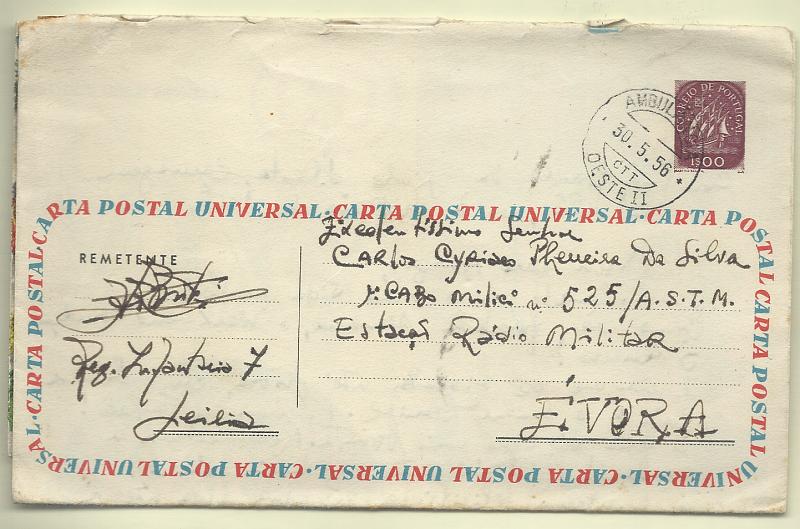 CORREIO DE PORTUGAL
1$00
AMBUL
30.5.56
CTT
OESTE II
CARTA POSTAL UNIVERSAL · CARTA POSTAL UNIVERSAL · CARTA POSTAL
CARTA POSTAL UNIVERSAL · CARTA POSTAL UNIVERSAL · CARTA POSTAL UNIVERSAL ·
REMETENTE
Reg. Infantaria 7
Leiria
Excelentíssimo Senhor
CARLOS Da Silva
1º CABO Milici nº 525/A.S.T.M.
Estaçaõ Rádio Militar
ÉVORA